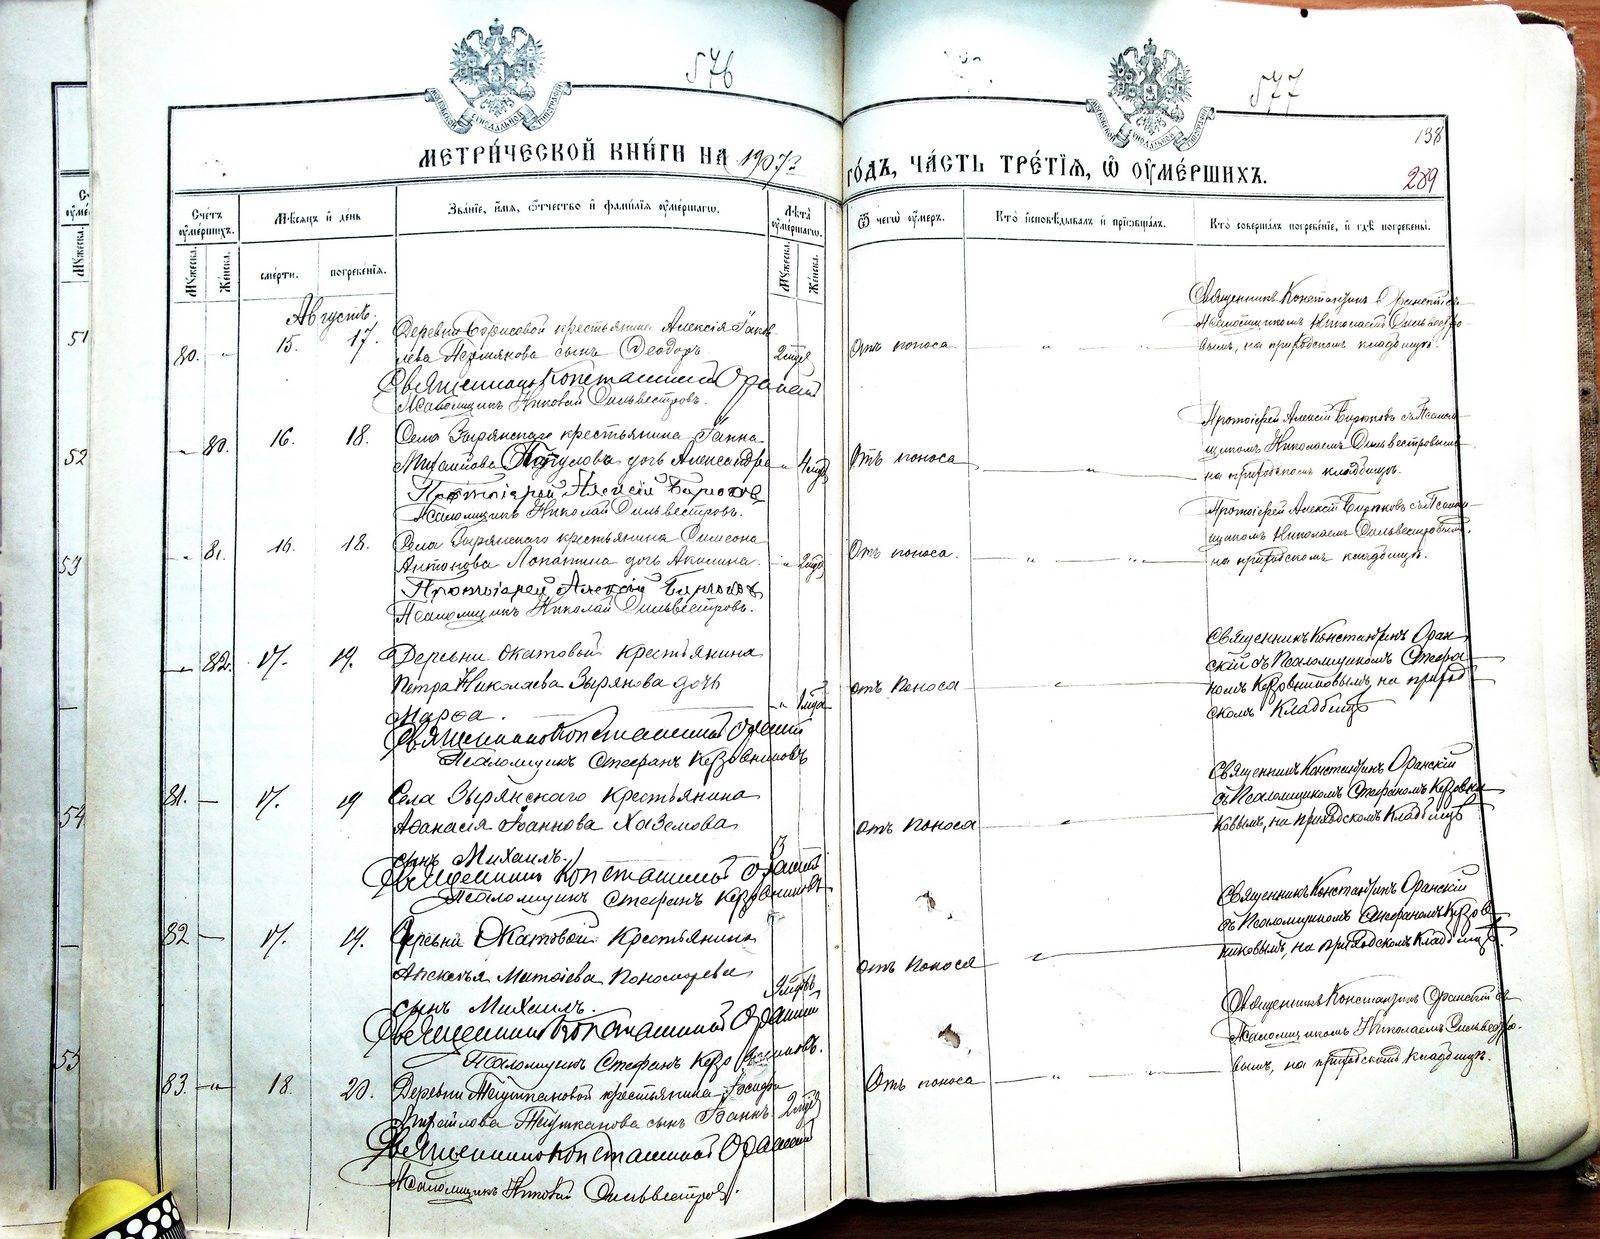 576
577
138
289
МЕТРИ́ЧЕСКОЙ КНИ́ГИ НА 1907 г.
ГО́ДЪ, ЧА́СТЬ ТРЕ́ТІЯ, Ѡ ОУМЕ́РШИХЪ.
Счетъ оумершихъ.
Мѣсяцъ и день
Званіе, имя, отчество и фамилія оумершагѡ.
Лѣта оумершагѡ.
Ѿ чегѡ оумеръ.
Кто исповѣдывалъ и пріобщалъ.
Кто совершалъ погребеніе, и гдѣ погребены.
Мужеска.
Женска.
смерти.
погребенія.
Мужеска.
Женска.
Августъ.
80. " 15. 17. Деревни Борисовой крестьянина Алексія Іаков
лева Пермякова сынъ Ѳеодоръ 2 мѣся
Отъ поноса
Священникъ Константинъ Оранскій съ
Псаломщикомъ Николаемъ Сильвестро
вымъ, на приходскомъ кладбищѣ.
Священникъ Константинъ Оранскій
Псаломщикъ Николай Сильвестровъ.
" 80. 16. 18. Села Зырянскаго крестьянина Іанна
Михаилова дочь Александра " 4
Отъ поноса
Протоіерей Алексій Бирюковъ съ Псалом
щикомъ Николаемъ Сильвестровымъ
на приходскомъ кладбищѣ.
Протоіерей Алексій Бирюковъ
Псаломщикъ Николай Сильвестровъ.
" 81. 16. 18. Села Зырянскаго крестьянина Симеона
Антонова Лопатина дочь Акилина. " 2
Отъ поноса.
Протоіерей Алексій Бирюковъ съ Псалом
щикомъ Николаемъ Сильвестровымъ,
на приходскомъ кладбищѣ.
Протоіерей Алексій Бирюковъ
Псаломщикъ Николай Сильвестровъ.
82. 17. 19. Деревни Окатовой крестьянина
Петра Николаева Зырянова дочь
Марѳа. " 1
отъ поноса
Священникъ Константинъ Оран
скій съ Псаломщикомъ Стефа
номъ Кузовниковымъ, на приход
скомъ кладбищѣ
Священникъ Константинъ Оранскій
Псаломщикъ Стефанъ Кузовниковъ
81. — 17. 19 Села Зырянскаго крестьянина
Аѳанасія Іоаннова Хаземова
сынъ Михаилъ. 3
отъ поноса
Священникъ Константинъ Оранскій
съ Псаломщикомъ Стефаномъ Кузовни
ковымъ, на приходскомъ кладбищѣ
Священникъ Константинъ Оранскій
Псаломщикъ Стефанъ Кузовниковъ
82 — 17. 19. Деревни Окатовой крестьянина
Алексѣя Матѳіева Пономарева
сынъ Михаилъ.
отъ поноса
Священникъ Константинъ Оранскій
съ Псаломщикомъ Стефаномъ Кузов
никовымъ, на приходскомъ кладбищѣ.
Священникъ Константинъ Оранскій
Псаломщикъ Стефанъ Кузовниковъ.
83. " 18. 20. Деревни Тюшкановой крестьянина Іосифа
Михаилова Тюшканова сынъ Іоаннъ. 2
Отъ поноса
Священникъ Константинъ Оранскій съ
Псаломщикомъ Николаемъ Сильвестро
вымъ, на приходскомъ кладбищѣ.
Священникъ Константинъ Оранскій
Псаломщикъ Николай Сильвестровъ.
51
52
53
54
55